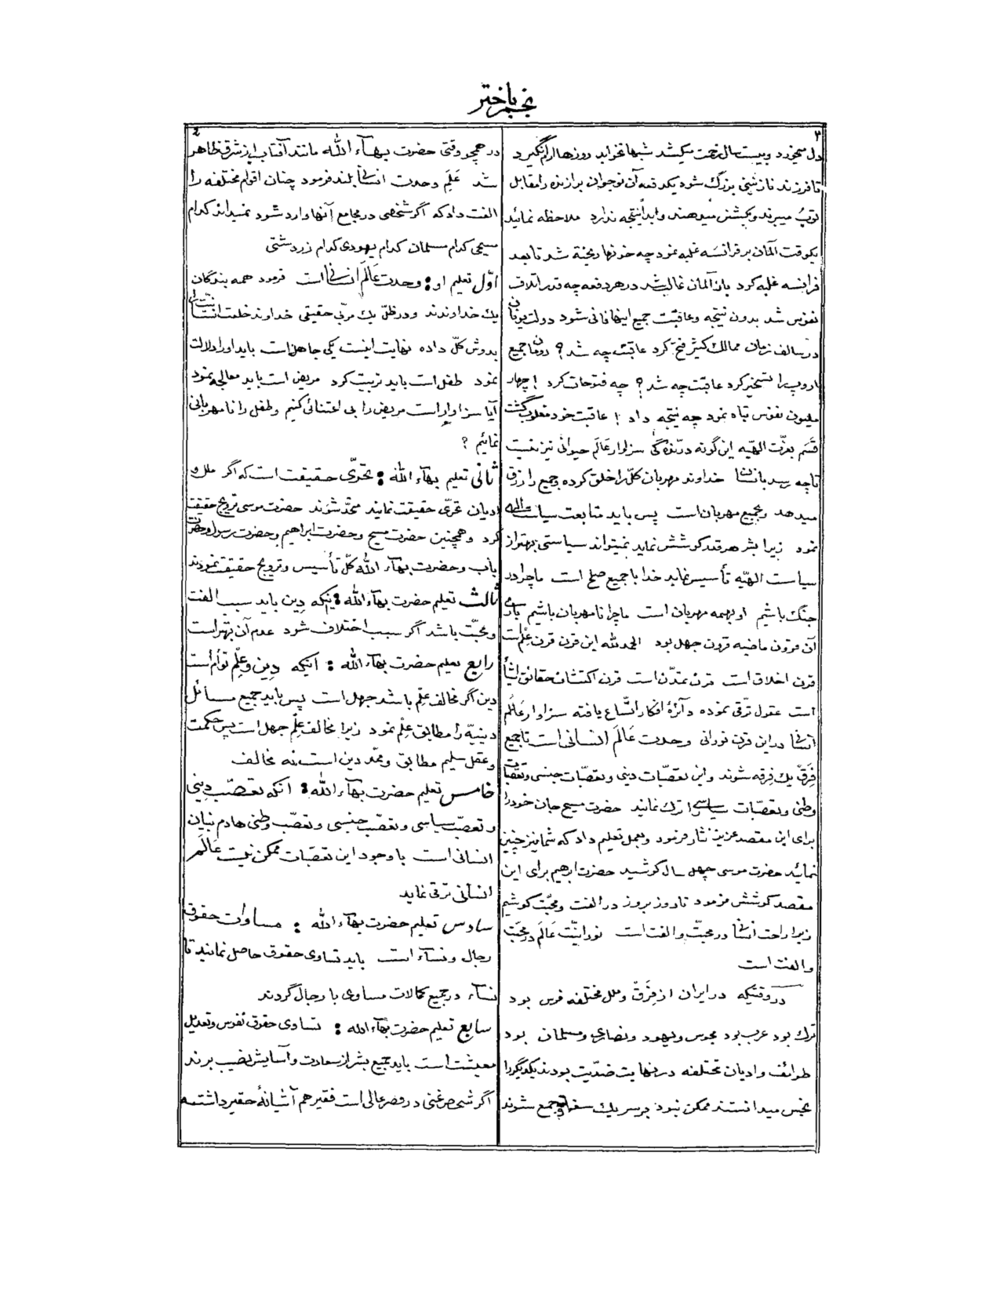 نجم باختر
۳
دل میخورد و بیست سال زحمت میکشد شبها نخوابد روزها آرام نگیرد
تا فرزند نازنینی بزرگ شود یکدفعه آن نوجوان برازنده را مقابل
توپ میبرند و بکشتن میدهند و ابداً نتیجه ندارد ملاحظه نمائید
یکوقت آلمان بر فرانسه غلبه نمود چه خونها ریخته شد تا بعد
فرانسه غلبه کرد باز آلمان غالب شد در هر دفعه چه قدر اتلاف
نفوس شد بدون نتیجه و عاقبت جمیع اینها فانی شود دولت یونان
در سالف زمان ممالک کثیره فتح کرد عاقبت چه شد؟ رومان جمیع
اروپ را تسخیر کرد عاقبت چه شد؟ چه فتوحات کرد! چهار
ملیون نفوس تباه نمود چه نتیجه داد! عاقبت خود مغلوب گشت
قسم بعزّت الهیه این گونه درندگی سزاوار عالم حیوانی نیز نیست
تا چه رسد بانسان خداوند مهربان کلّ را خلق کرده جمیع را رزق
میدهد و بجمیع مهربان است پس باید متابعت سیاست الهی
نمود زیرا بشر هر قدر کوشش نماید نمیتواند سیاستی بهتر از
سیاست الهیّه تأسیس نماید خدا با جمیع صلح است ما چرا در
جنگ باشیم او بهمه مهربان است ما چرا نامهربان باشیم باری
آن قرون ماضیه قرون جهل بود الحمد لله این قرن قرن علم است
قرن اخلاق است قرن تمدّن است قرن اکتشاف حقائق اشیاء
است عقول ترقی نموده دائرهٔ افکار اتّساع یافته سزاوار عالم
انسانی در این قرن نورانی وحدت عالم انسانی است تا جمیع
فِرَق یک فرقه شوند و این تعصّبات دینی و تعصّبات جنسی و تعصّبات
وطنی و تعصّبات سیاسی را ترک نمایند حضرت مسیح جان خود را
برای این مقصد عزیز نثار فرمود و بعمل تعلیم داد که شما نیز چنین
نمائید حضرت موسی چهل سال کوشید حضرت ابراهیم برای این
مقصد کوشش فرمود تا روز بروز در الفت و محبّت کوشیم
زیرا راحت انسانی در محبّت و الفت است نورانیّت عالم در محبّت
و الفت است
در وقتیکه در ایران از فِرَق و ملل مختلفه فرس بود
ترک بود عرب بود مجوس و یهود و نصاری و مسلمان بود
طوائف و ادیان مختلفه در نهایت ضدّیت بودند یکدیگر را
نجس میدانستند ممکن نبود بر سر یک سفره جمع شوند
٤
در همچو وقتی حضرت بهآء الله مانند آفتاب از شرق ظاهر
شد عَلَم وحدت انسانی بلند فرمود چنان اقوام مختلفه را
الفت داد که اگر شخصی در مجامع آنها وارد شود نمیداند کدام
مسیحی کدام مسلمان کدام یهودی کدام زردشتی
اوّل تعلیم او: وحدت عالم انسانی است فرمود همه بندگان
یک خداوندند و در ظلّ یک مربّی حقیقی خداوند خلعت انسانیت را
بدوش کلّ داده نهایت اینست یکی جاهل است باید او را دلالت
نمود طفل است باید تربیت کرد مریض است باید معالجه نمود
آیا سزاوار است مریض را بی اعتنائی کنیم و طفل را نامهربانی
نمائیم ؟
ثانی تعلیم بهآء الله: تحرّی حقیقت است که اگر ملل و
ادیان تحرّی حقیقت نمایند متّحد شوند حضرت موسی ترویج حقیقت
کرد و همچنین حضرت مسیح و حضرت ابراهیم و حضرت رسول و حضرت
باب و حضرت بهآء الله کلّ تأسیس و ترویج حقیقت نمودند
ثالث تعلیم حضرت بهآء الله: اینکه دین باید سبب الفت
و محبّت باشد اگر سبب اختلاف شود عدم آن بهتر است
رابع تعلیم حضرت بهآء الله : اینکه دین و علم توأم است
دین اگر مخالف علم باشد جهل است پس باید جمیع مسائل
دینیّه را مطابق علم نمود زیرا مخالف علم جهل است پس حکمت
و عقل سلیم مطابق و ممدّ دین است نه مخالف
خامس تعلیم حضرت بهآء الله: آنکه تعصّب دینی
و تعصّب سیاسی و تعصّب جنسی و تعصّب وطنی هادم بنیان
انسانی است با وجود این تعصّبات ممکن نیست عالم
انسانی ترقی نماید
سادس تعلیم حضرت بهآء الله : مساوات حقوق
رجال و نسآء است باید تساوی حقوق حاصل نمایند تا
نسآء در جمیع کمالات مساوی با رجال گردند
سابع تعلیم حضرت بهآء الله: تساوی حقوق نفوس و تعدیل
معیشت است باید جمیع بشر از سعادت و آسایش نصیب برند
اگر شخص غنی در قصر عالی است فقیر هم آشیانهٔ حقیر داشته